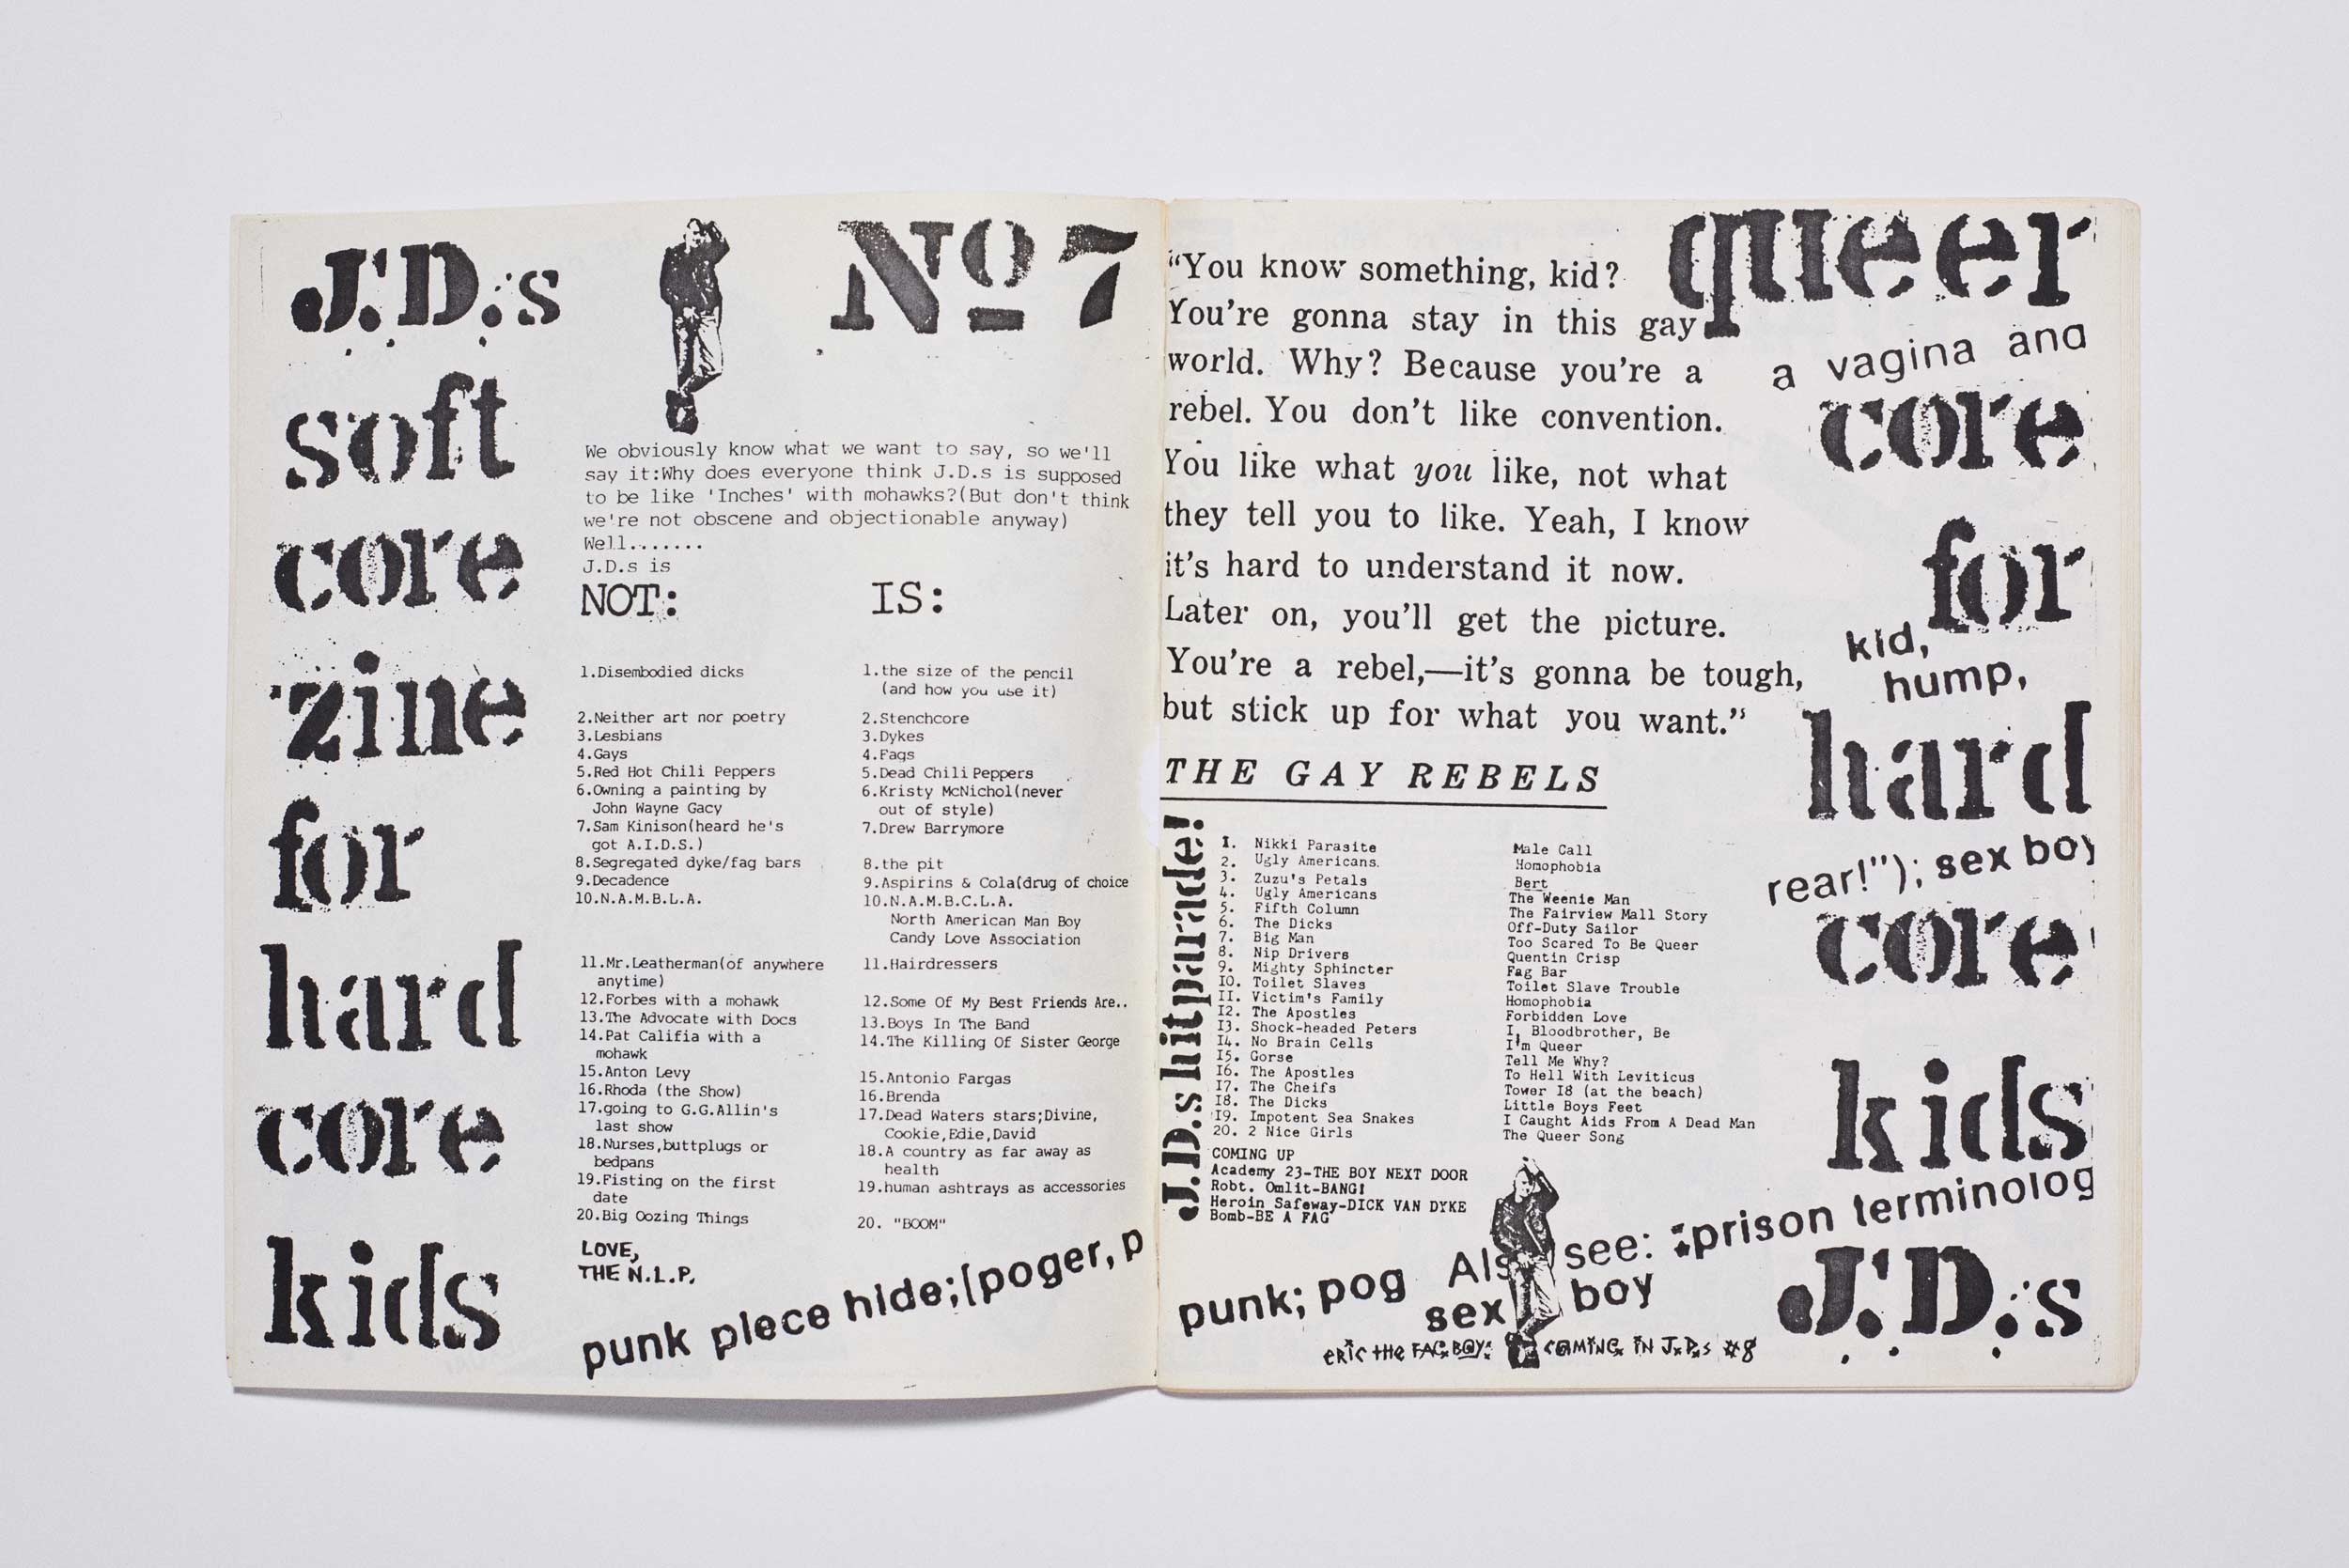 J.D.s
No 7
soft
core
zine
for
hard
core
kids
We obviously know what we want to say, so we'll
say it:Why does everyone think J.D.s is supposed
to be like 'Inches' with mohawks?(But don't think
we're not obscene and objectionable anyway)
Well.......
J.D.s is
NOT:
1.Disembodied dicks
2.Neither art nor poetry
3.Lesbians
4.Gays
5.Red Hot Chili Peppers
6.Owning a painting by
John Wayne Gacy
7.Sam Kinison(heard he's
got A.I.D.S.)
8.Segregated dyke/fag bars
9.Decadence
10.N.A.M.B.L.A.
11.Mr.Leatherman(of anywhere
anytime)
12.Forbes with a mohawk
13.The Advocate with Docs
14.Pat Califia with a
mohawk
15.Anton Levy
16.Rhoda (the Show)
17.going to G.G.Allin's
last show
18.Nurses,buttplugs or
bedpans
19.Fisting on the first
date
20.Big Oozing Things
IS:
1.the size of the pencil
(and how you use it)
2.Stenchcore
3.Dykes
4.Fags
5.Dead Chili Peppers
6.Kristy McNichol(never
out of style)
7.Drew Barrymore
8.the pit
9.Aspirins & Cola(drug of choice
10.N.A.M.B.C.L.A.
North American Man Boy
Candy Love Association
11.Hairdressers
12.Some Of My Best Friends Are..
13.Boys In The Band
14.The Killing Of Sister George
15.Antonio Fargas
16.Brenda
17.Dead Waters stars;Divine,
Cookie,Edie,David
18.A country as far away as
health
19.human ashtrays as accessories
20. "BOOM"
LOVE,
THE N.L.P.
punk piece hide;[poger, p
"You know something, kid?
You're gonna stay in this gay
world. Why? Because you're a
rebel. You don't like convention.
You like what you like, not what
they tell you to like. Yeah, I know
it's hard to understand it now.
Later on, you'll get the picture.
You're a rebel,—it's gonna be tough,
but stick up for what you want."
THE GAY REBELS
J.D.s hit parade!
1. Nikki Parasite Male Call
2. Ugly Americans. Homophobia
3. Zuzu's Petals Bert
4. Ugly Americans The Weenie Man
5. Fifth Column The Fairview Mall Story
6. The Dicks Off-Duty Sailor
7. Big Man Too Scared To Be Queer
8. Nip Drivers Quentin Crisp
9. Mighty Sphincter Fag Bar
I0. Toilet Slaves Toilet Slave Trouble
II. Victim's Family Homophobia
I2. The Apostles Forbidden Love
I3. Shock-headed Peters I, Bloodbrother, Be
I4. No Brain Cells I'm Queer
I5. Gorse Tell Me Why?
I6. The Apostles To Hell With Leviticus
I7. The Cheifs Tower I8 (at the beach)
I8. The Dicks Little Boys Feet
I9. Impotent Sea Snakes I Caught Aids From A Dead Man
20. 2 Nice Girls The Queer Song
COMING UP
Academy 23-THE BOY NEXT DOOR
Robt. Omlit-BANG!
Heroin Safeway-DICK VAN DYKE
Bomb-BE A FAG
queer
a vagina and
core
for
kid,
hump,
hard
rear!"); sex boy
core
kids
punk; pog Als see: *prison terminolog
sex boy
J.D.s
ERIC THE FAG BOY: COMING IN J.D.s #8